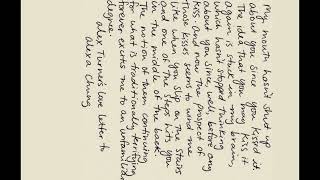 My mouth hasn't shut up
about you since you kissed it.
The idea that you may kiss it
again is stuck in my brain,
which hasn't stopped thinking
about you since, well, before any
kiss. And now the prospect of
those kisses seems to wind me
like when you slip on the stairs
and one of the steps hits you
in the middle of the back.
The notion of them continuing
for what is traditionally terrifying
forever excites me to an unfamiliar
degree.
alex Turner's love letter to
alexa chung